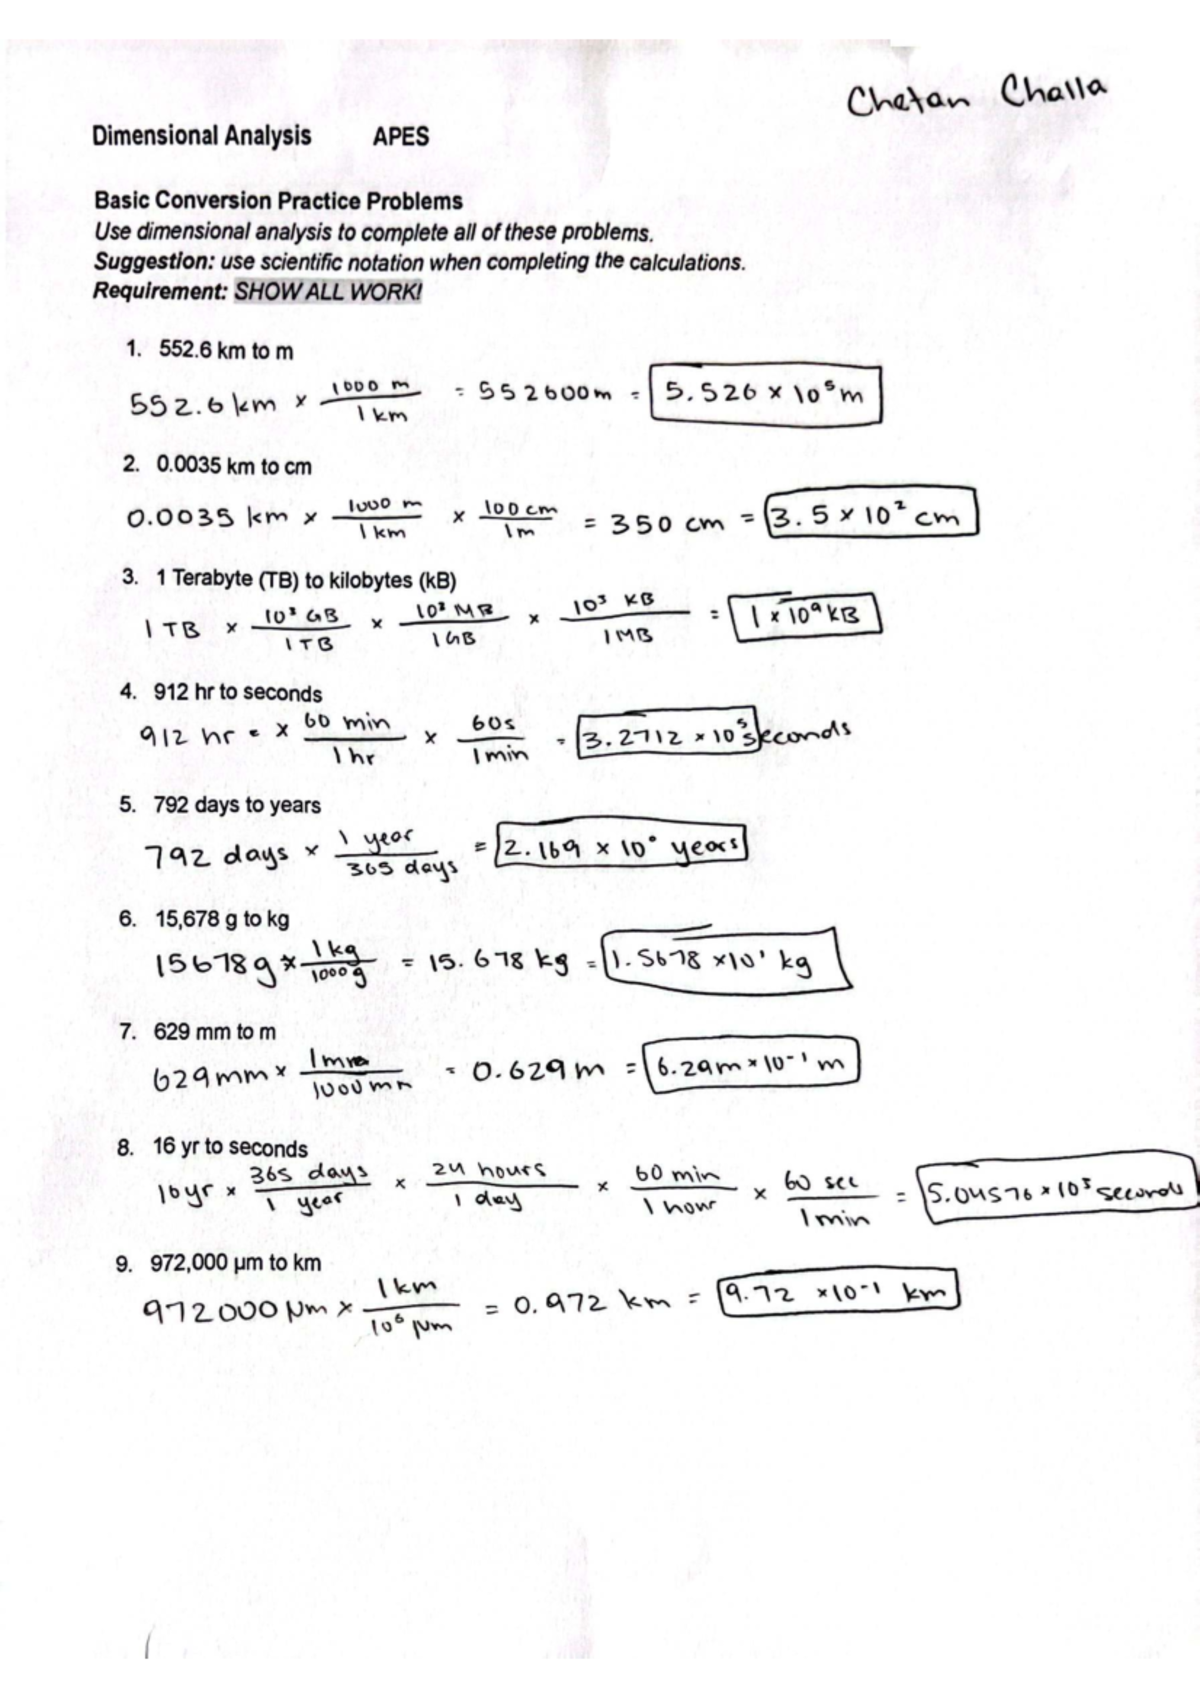 Chetan Challa
Dimensional Analysis APES
Basic Conversion Practice Problems
Use dimensional analysis to complete all of these problems.
Suggestion: use scientific notation when completing the calculations.
Requirement: SHOW ALL WORK!
1. 552.6 km to m
552.6 km × 1000 m / 1 km = 552600m = 5.526 × 10⁵ m
2. 0.0035 km to cm
0.0035 km × 1000 m / 1 km × 100 cm / 1m = 350 cm = 3.5 × 10² cm
3. 1 Terabyte (TB) to kilobytes (kB)
1 TB × 10³ GB / 1 TB × 10³ MB / 1 GB × 10³ KB / 1 MB = 1 × 10⁹ kB
4. 912 hr to seconds
912 hr × 60 min / 1 hr × 60s / 1 min = 3.2712 × 10⁵ seconds
5. 792 days to years
792 days × 1 year / 365 days = 2.169 × 10⁰ years
6. 15,678 g to kg
15678g × 1 kg / 1000 g = 15.678 kg = 1.5678 × 10¹ kg
7. 629 mm to m
629mm × 1m / 1000 mm = 0.629 m = 6.29m × 10⁻¹ m
8. 16 yr to seconds
16yr × 365 days / 1 year × 24 hours / 1 day × 60 min / 1 hour × 60 sec / 1 min = 5.04576 × 10⁸ seconds
9. 972,000 µm to km
972000 µm × 1 km / 10⁶ µm = 0.972 km = 9.72 × 10⁻¹ km